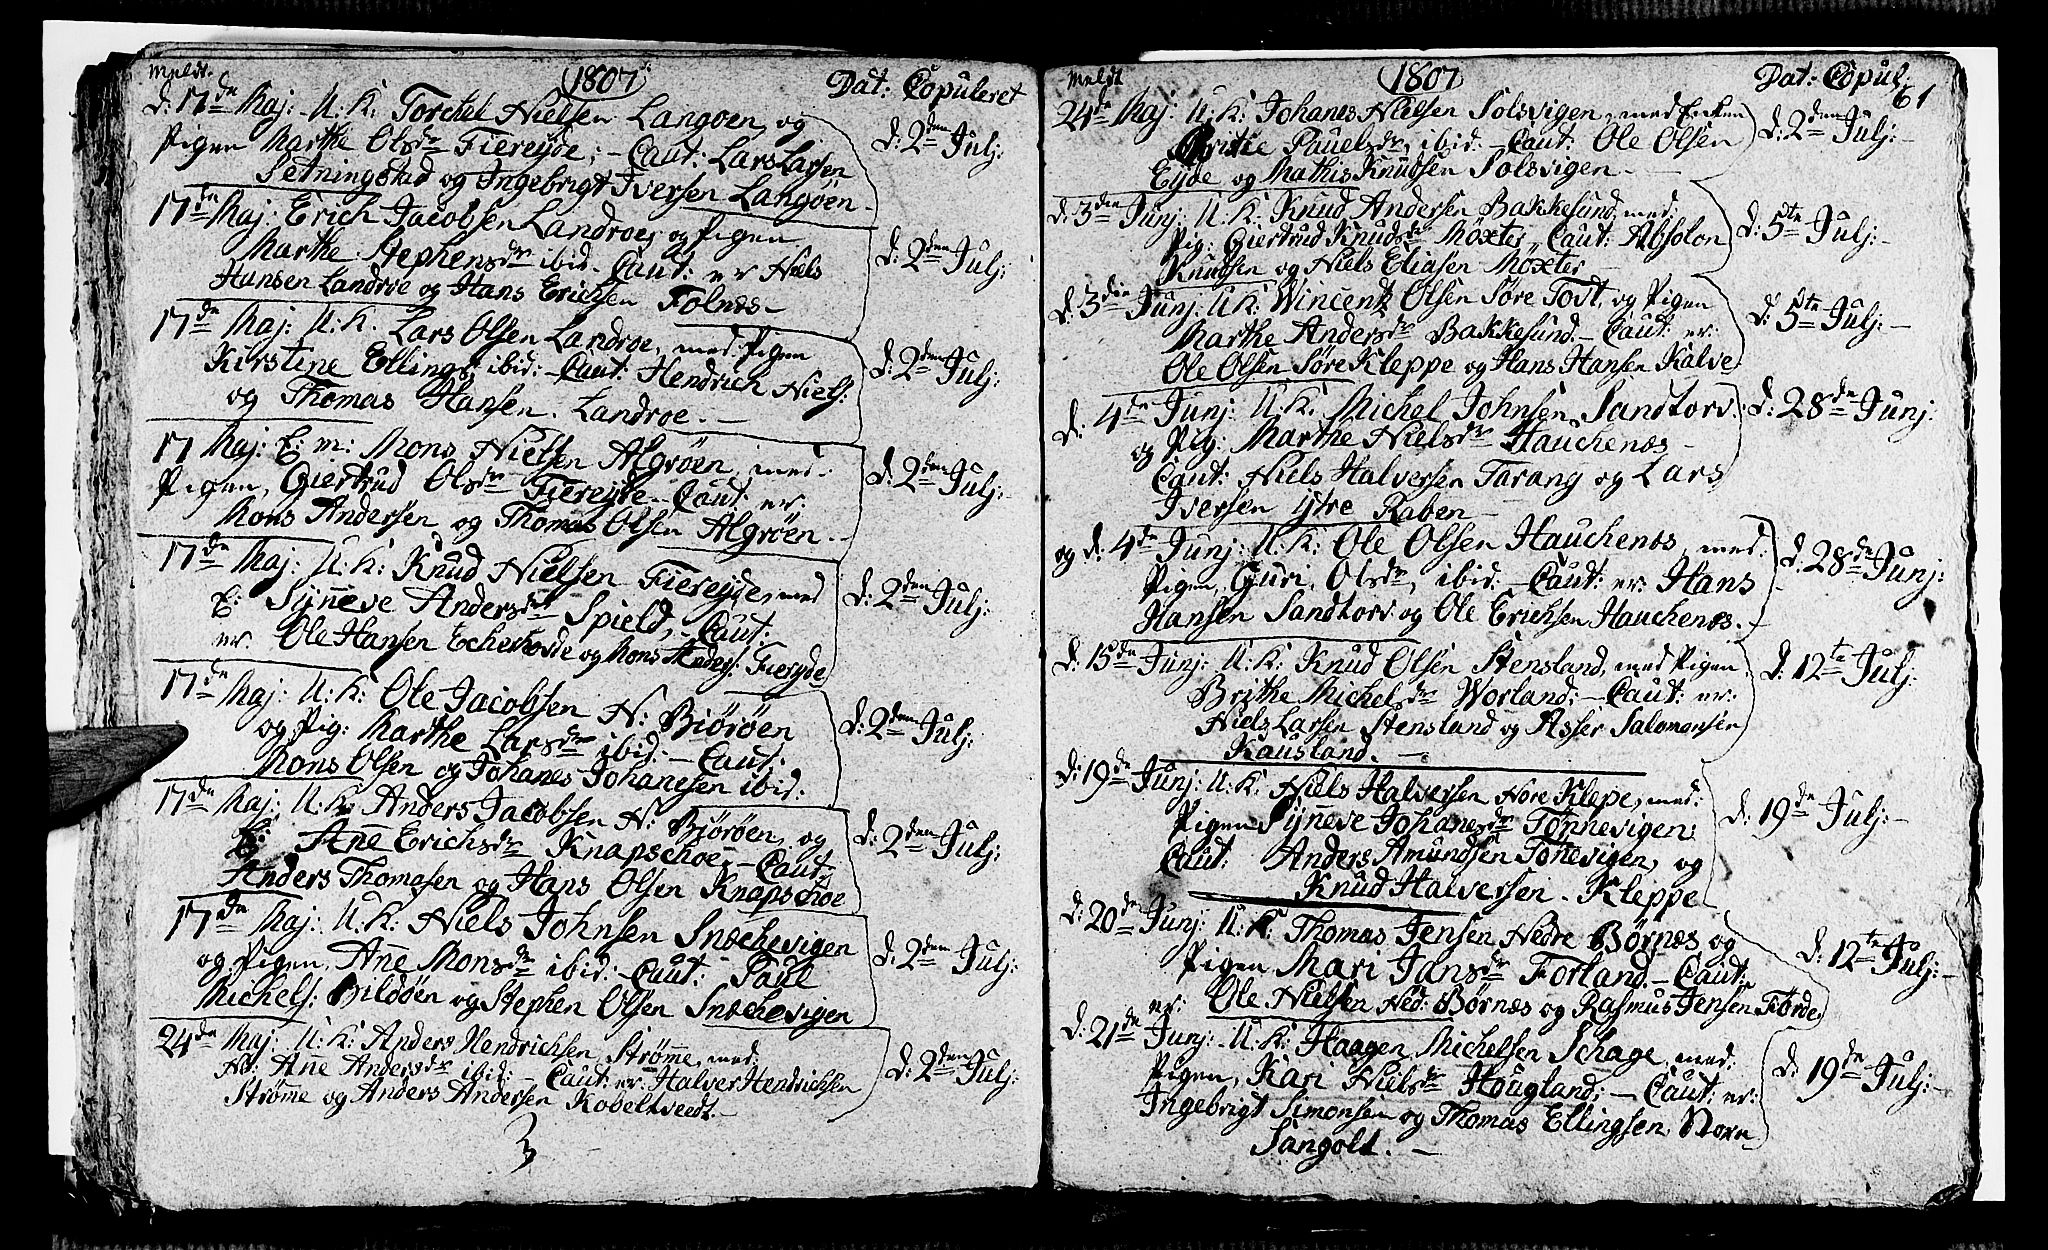 Meldt. 1807 Dat: Copuleret
d: 17de Maj: U: K: Torchel Nielsen Langøen, og
Pigen Marthe Olsdr Fiereyde; – Caut: Lars Larsen
Setningstad og Ingebrigt Iversen Langøen –
d: 2den Julj:
17de Maj: Erich Jacobsen Landroe, og Pigen
Marthe Stephensdr ibid – Caut: er Niels
Hansen Landroe og Hans Erichsen Folnæs –
d: 2den Julj:
17de Maj: U: K. Lars Olsen Landroe, med Pigen
Kirstine Ellings: ibid: – Caut: Hendrich Niels:
og Thomas Hansen Landroe. –
d: 2den Julj:
17 Maj: E: m: Mons Nielsen Algrøen, med
Pigen, Giertrud Olsdr Fiereyde – Caut: er:
Mons Andersen og Thomas Olsen Algrøen. –
d: 2den Julj: –
17de Maj: U: K: Knud Nielsen Fiereyde, med
E: Synneve Andersdr Spield, – Caut:
er. Ole Hansen og Mons Anders: Fiereyde
d: 2den Julj:
17de Maj: U: K: Ole Jacobsen N: Biørøen
og Pig: Marthe Larsdr ibid: – Caut:
Mons Olsen og Johanes Johanesen ibid:
d: 2den Julj:
17de Maj: U: K. Anders Jacobsen N: Biørøen, og
E: Anne Erichsdr Knapschoe – Caut:
Anders Thomasen og Hans Olsen Knapschoe
d: 2den Julj:
17de Maj: U: K: Niels Johnsen Snechevigen
og Pigen, Anne Monsdr ibid: – Caut: Paul
Michels: Bildøen og Stephen Olsen Snechevigen
d: 2den Julj:
24de Maj: U: K: Anders Hendrichsen Strømme, med:
Anne Andersdr ibid: – Caut: er: Halver Hendrichsen
Strøme og Anders Andersen Kobeltveedt. –
d: 2den Julj:
Meldt 1807 Dat: Copul:
61
24de Maj: U: K: Johanes Nielsen Solsvigen, med
Britte Pauelsdr, ibid: – Caut: Ole Olsen
Eyde og Mathis Knudsen Solsvigen –
d: 2den Julj:
d: 3die Junj: U: K: Knud Andersen Bakkesund, med:
Pig: Giertrud Knudsdr Møxter, Caut: Absolon
Knudsen og Niels Eliasen Møxter –
d: 5te Julj: –
d: 3die Junj: U: K: Wincentz Olsen Søre Toft, og Pigen
Marthe Andersdr Bakkesund. – Caut: er:
Ole Olsen Søre Kleppe og Hans Hansen Kalve
d: 5te Julj: –
d: 4de Junj: U: K: Michel Johnsen Sandtorv
og Pig: Marthe Nielsdr Hauchenæs –
Caut: Niels Halversen Tarang og Lars
Iversen ytre Raben –
d: 28de Junj:
og d: 4de Junj: U: K: Ole Olsen Hauchenæs, med
Pigen, Guri, Olsdr, ibid: – Caut: er: Hans
Hansen Sandtorv og Ole Erichsen Hauchenæs. –
d: 28de Junj:
d: 15de Junj: U: K: Knud Olsen Stensland, med Pigen
Brithe Michelsdr Worland; – Caut: er:
Niels Larsen Stensland og Asser Salomonsen
Kausland. –
d: 12te Julj:
d: 19de Junj: U: K: Niels Halversen Nore Klepe, med:
Pigen Synneve Johanesdr Tønnevigen;
Caut: Anders Amundsen Tønevigen, og
Knud Halversen – Kleppe
d: 19de Julj: –
d: 20de Junj: U: K: Thomas Jensen Nedre Børnæs og
Pigen Mari Jansdr Forland. – Caut:
er: Ole Nielsen Ned: Børnæs og Rasmus Jensen Førde
d: 12te Julj: –
d: 21de Junj: – U: K: Haagen Michelsen Schage, med:
Pigen, Kari Nielsdr Hougland; – Caut: er:
Ingebrigt Simonsen og Thomas Ellingsen Nore
Sangolt. –
d: 19de Julj: –